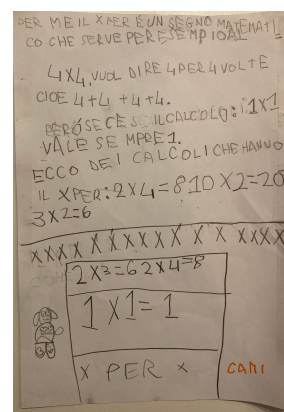 PER ME IL XPER É UN SEGNO MATEMATI
CO CHE SERVE PER ESEMPIO AL =
4X4, VUOL DIRE 4 PER 4 VOLTE
CIOE 4+4+4+4.
PERÓ SE C'É IL CALCOLO: 1X1
VALE SEMPRE 1.
ECCO DEI CALCOLI CHE HANNO
IL XPER: 2X4=8 10X2=20
3X2=6
XXXX X X X X X X X X X XXXX
2X3=6 2X4=8
1X1=1
X PER X
CAMI